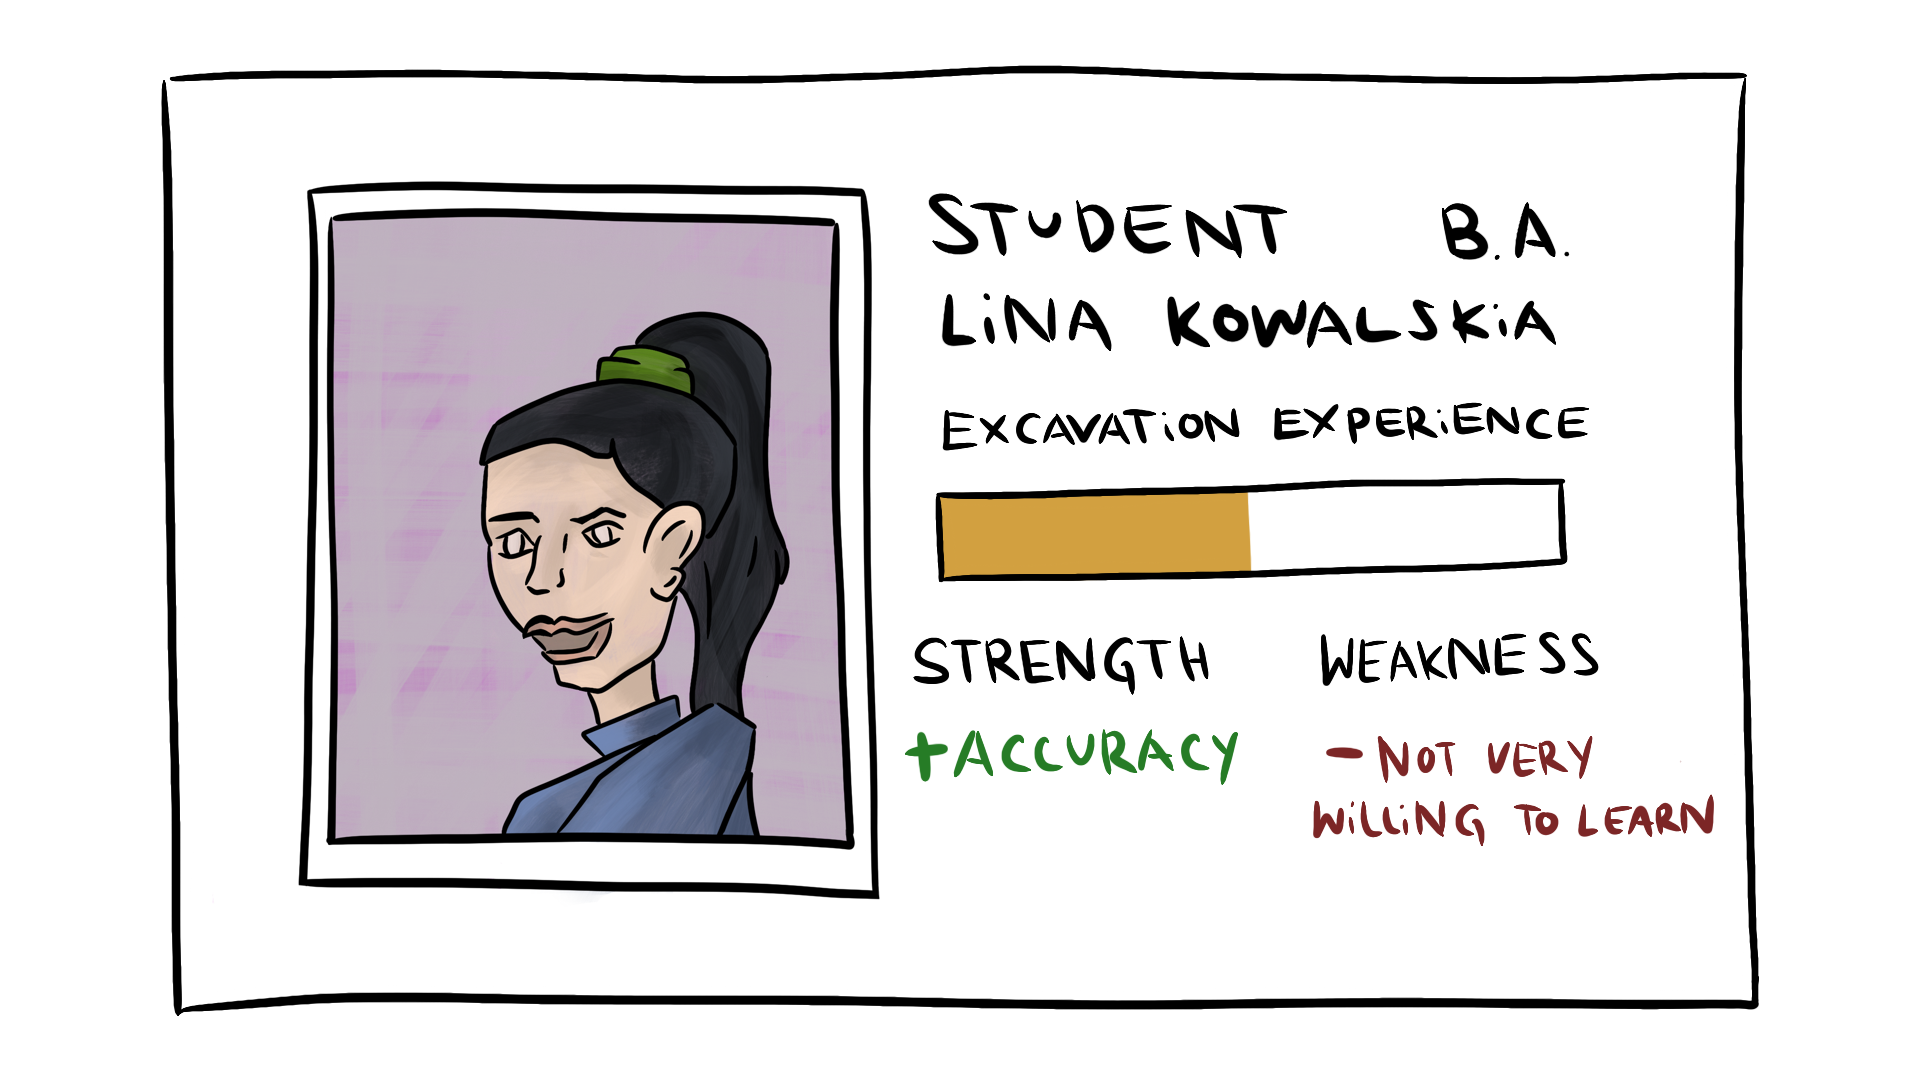 STUDENT B.A.
LiNA KOWALSKiA
EXCAVATiON EXPERiENCE
STRENGTH WEAKNESS
+ACCURACY
- NOT VERY
WiLLiNG TO LEARN